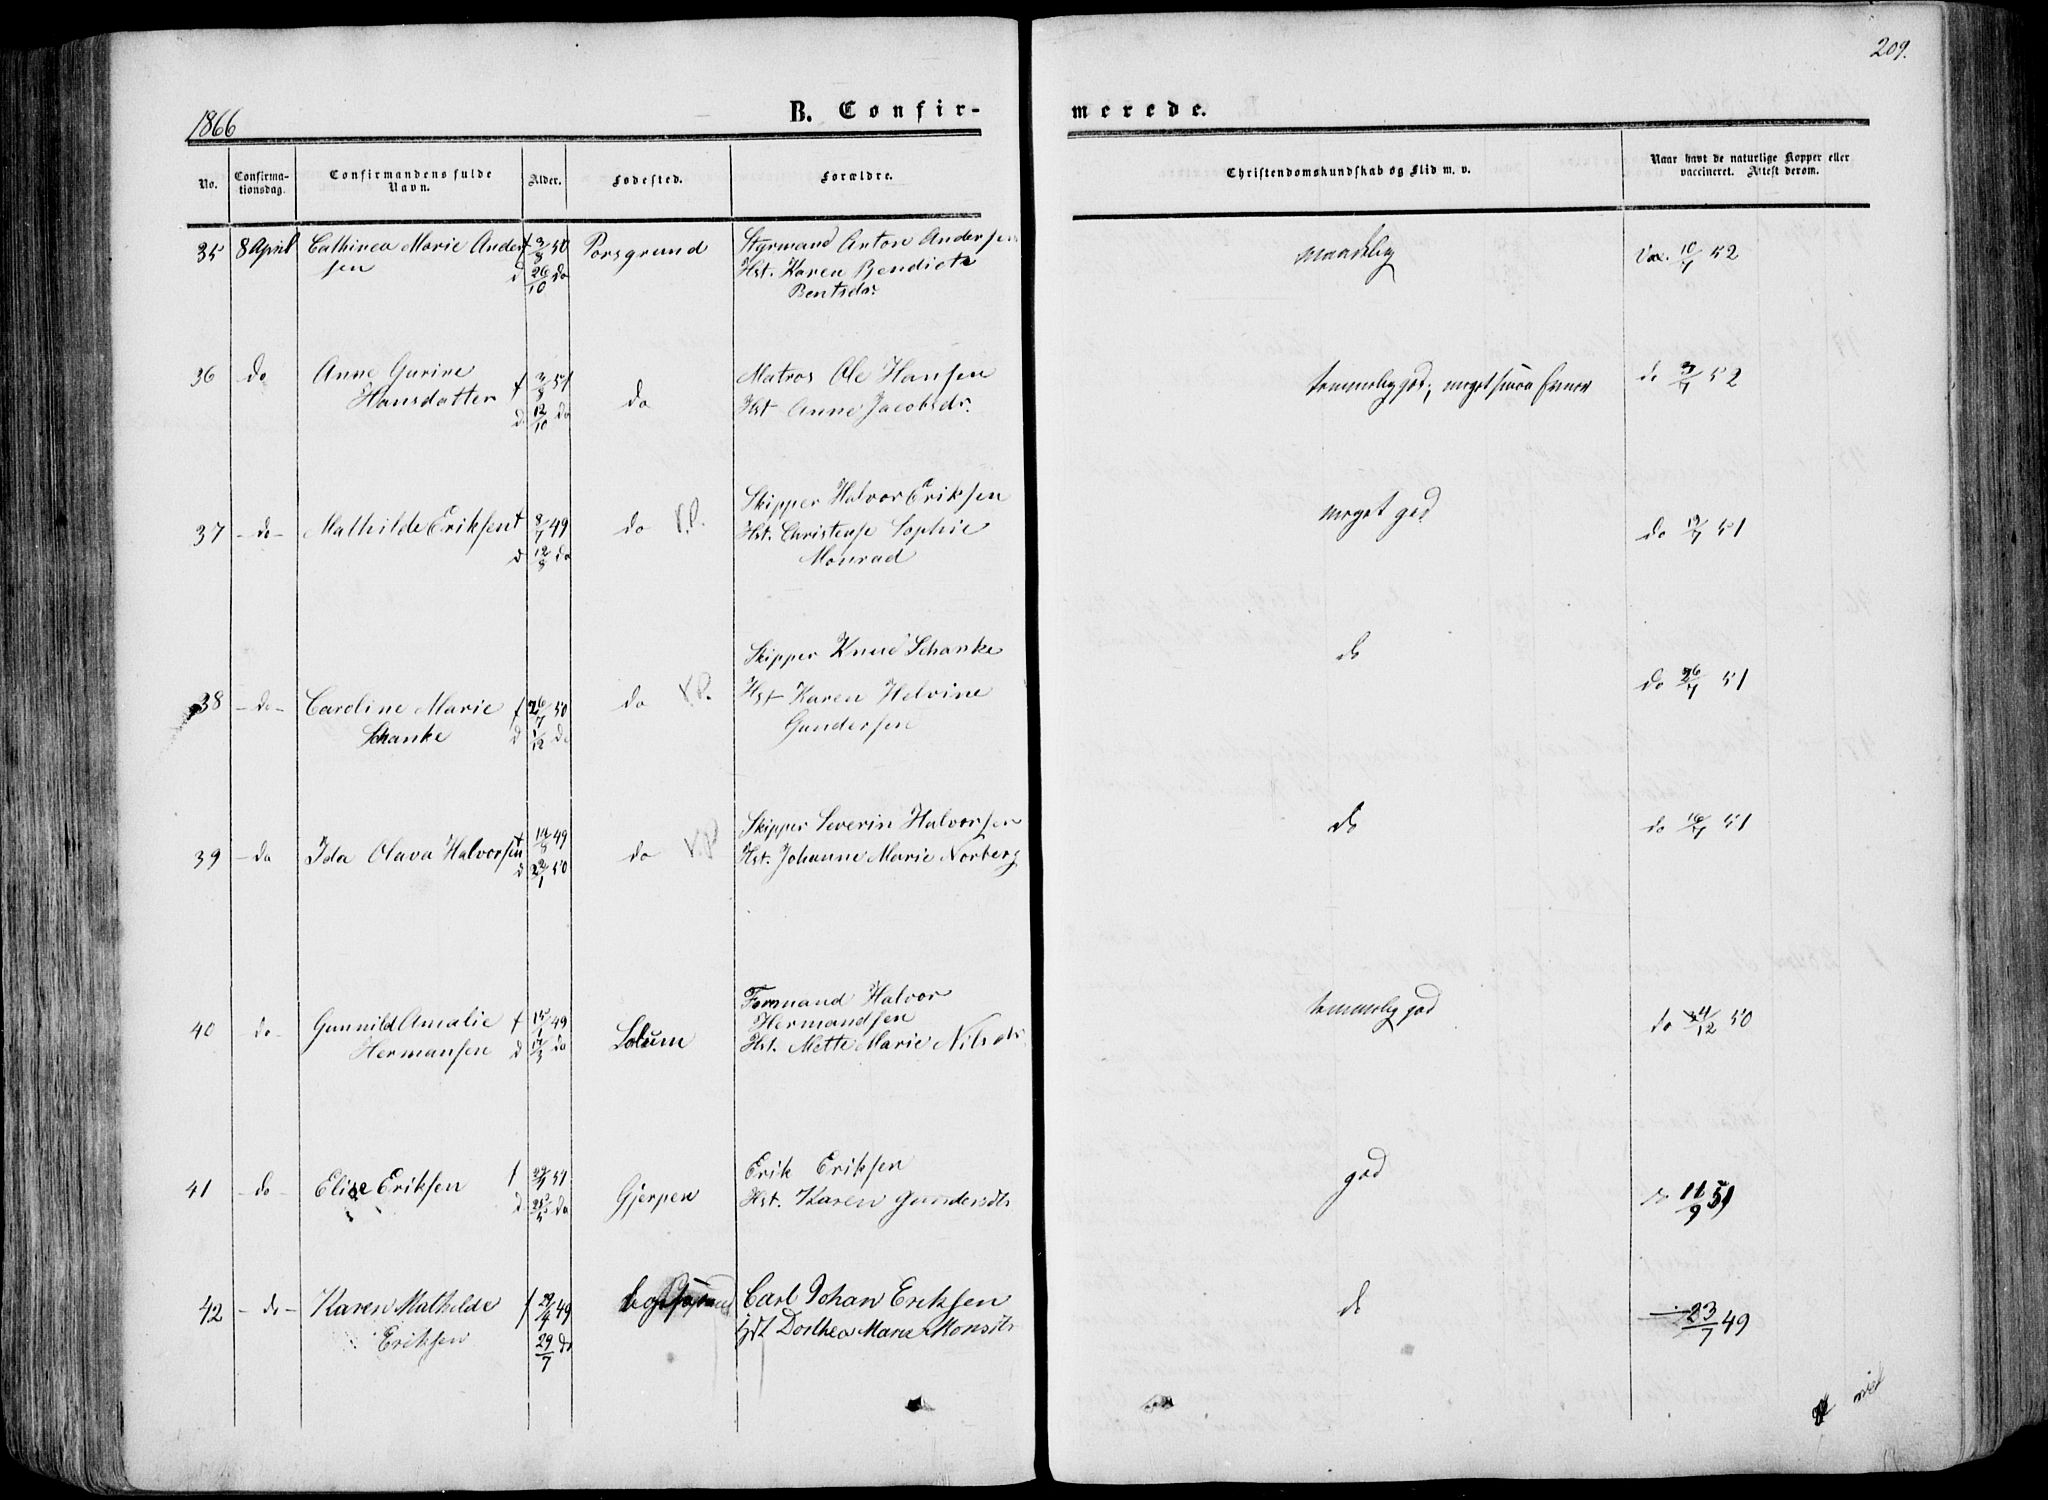 209.
1866
B. Confir-
merede.
No.
Confirma-
tionsdag.
Confirmandens fulde
Navn.
Alder.
Fødested.
Forældre.
Christendomskundskab og Flid m. v.
Naar havt de naturlige Kopper eller
vaccineret. Attest derom.
35 8 April Cathinca Marie Ander f 3/8 50 Porsgrund Styrmand Anton Andersen
sen d 26/10 do Hst. Karen Bendicte
Bentsdr.
maadelig
Vac. 10/7 52
36 do Anne Gurine f 3/8 51 do Matros Ole Hansen
Hansdatter d 12/10 do Hst Anne Jacobsdr.
temmelig god; meget svare Evner
do 3/7 52
37 - do - Mathilde Eriksen f 8/7 49 do V.P. Skipper Halvor Eriksen
d 12/8 do Hst. Christense Sophie
Monrad
meget god
do 19/7 51
38 - do - Caroline Marie f 26/7 50 do V.P. Skipper Knud Schanke
Schanke d 1/12 do Hst Karen Helvine
Gundersen
do
do 26/7 51
39 - do Ida Olava Halvorsen f 14/8 49 do V.P. Skipper Severin Halvorsen
d 22/1 50 Hst. Johanne Marie Norberg
do
do 16/7 51
40 - do - Gunnild Amalie f 15/1 49 Solum Formand Halvor
Hermandsen
Hermansen d 17/3 do Hst. Mette Marie Nilsdr.
temmelig god
do 24/12 50
41 - do - Elise Eriksen f 51 Gjerpen Erik Eriksen
d do Hst. Karen Gundersdtr
god
do 11/9 51
42 - do - Karen Mathilde f 49 Carl Johan Eriksen
Eriksen 29/7 do Hst Dorthea Marie Monsdtr
do
23/7 49